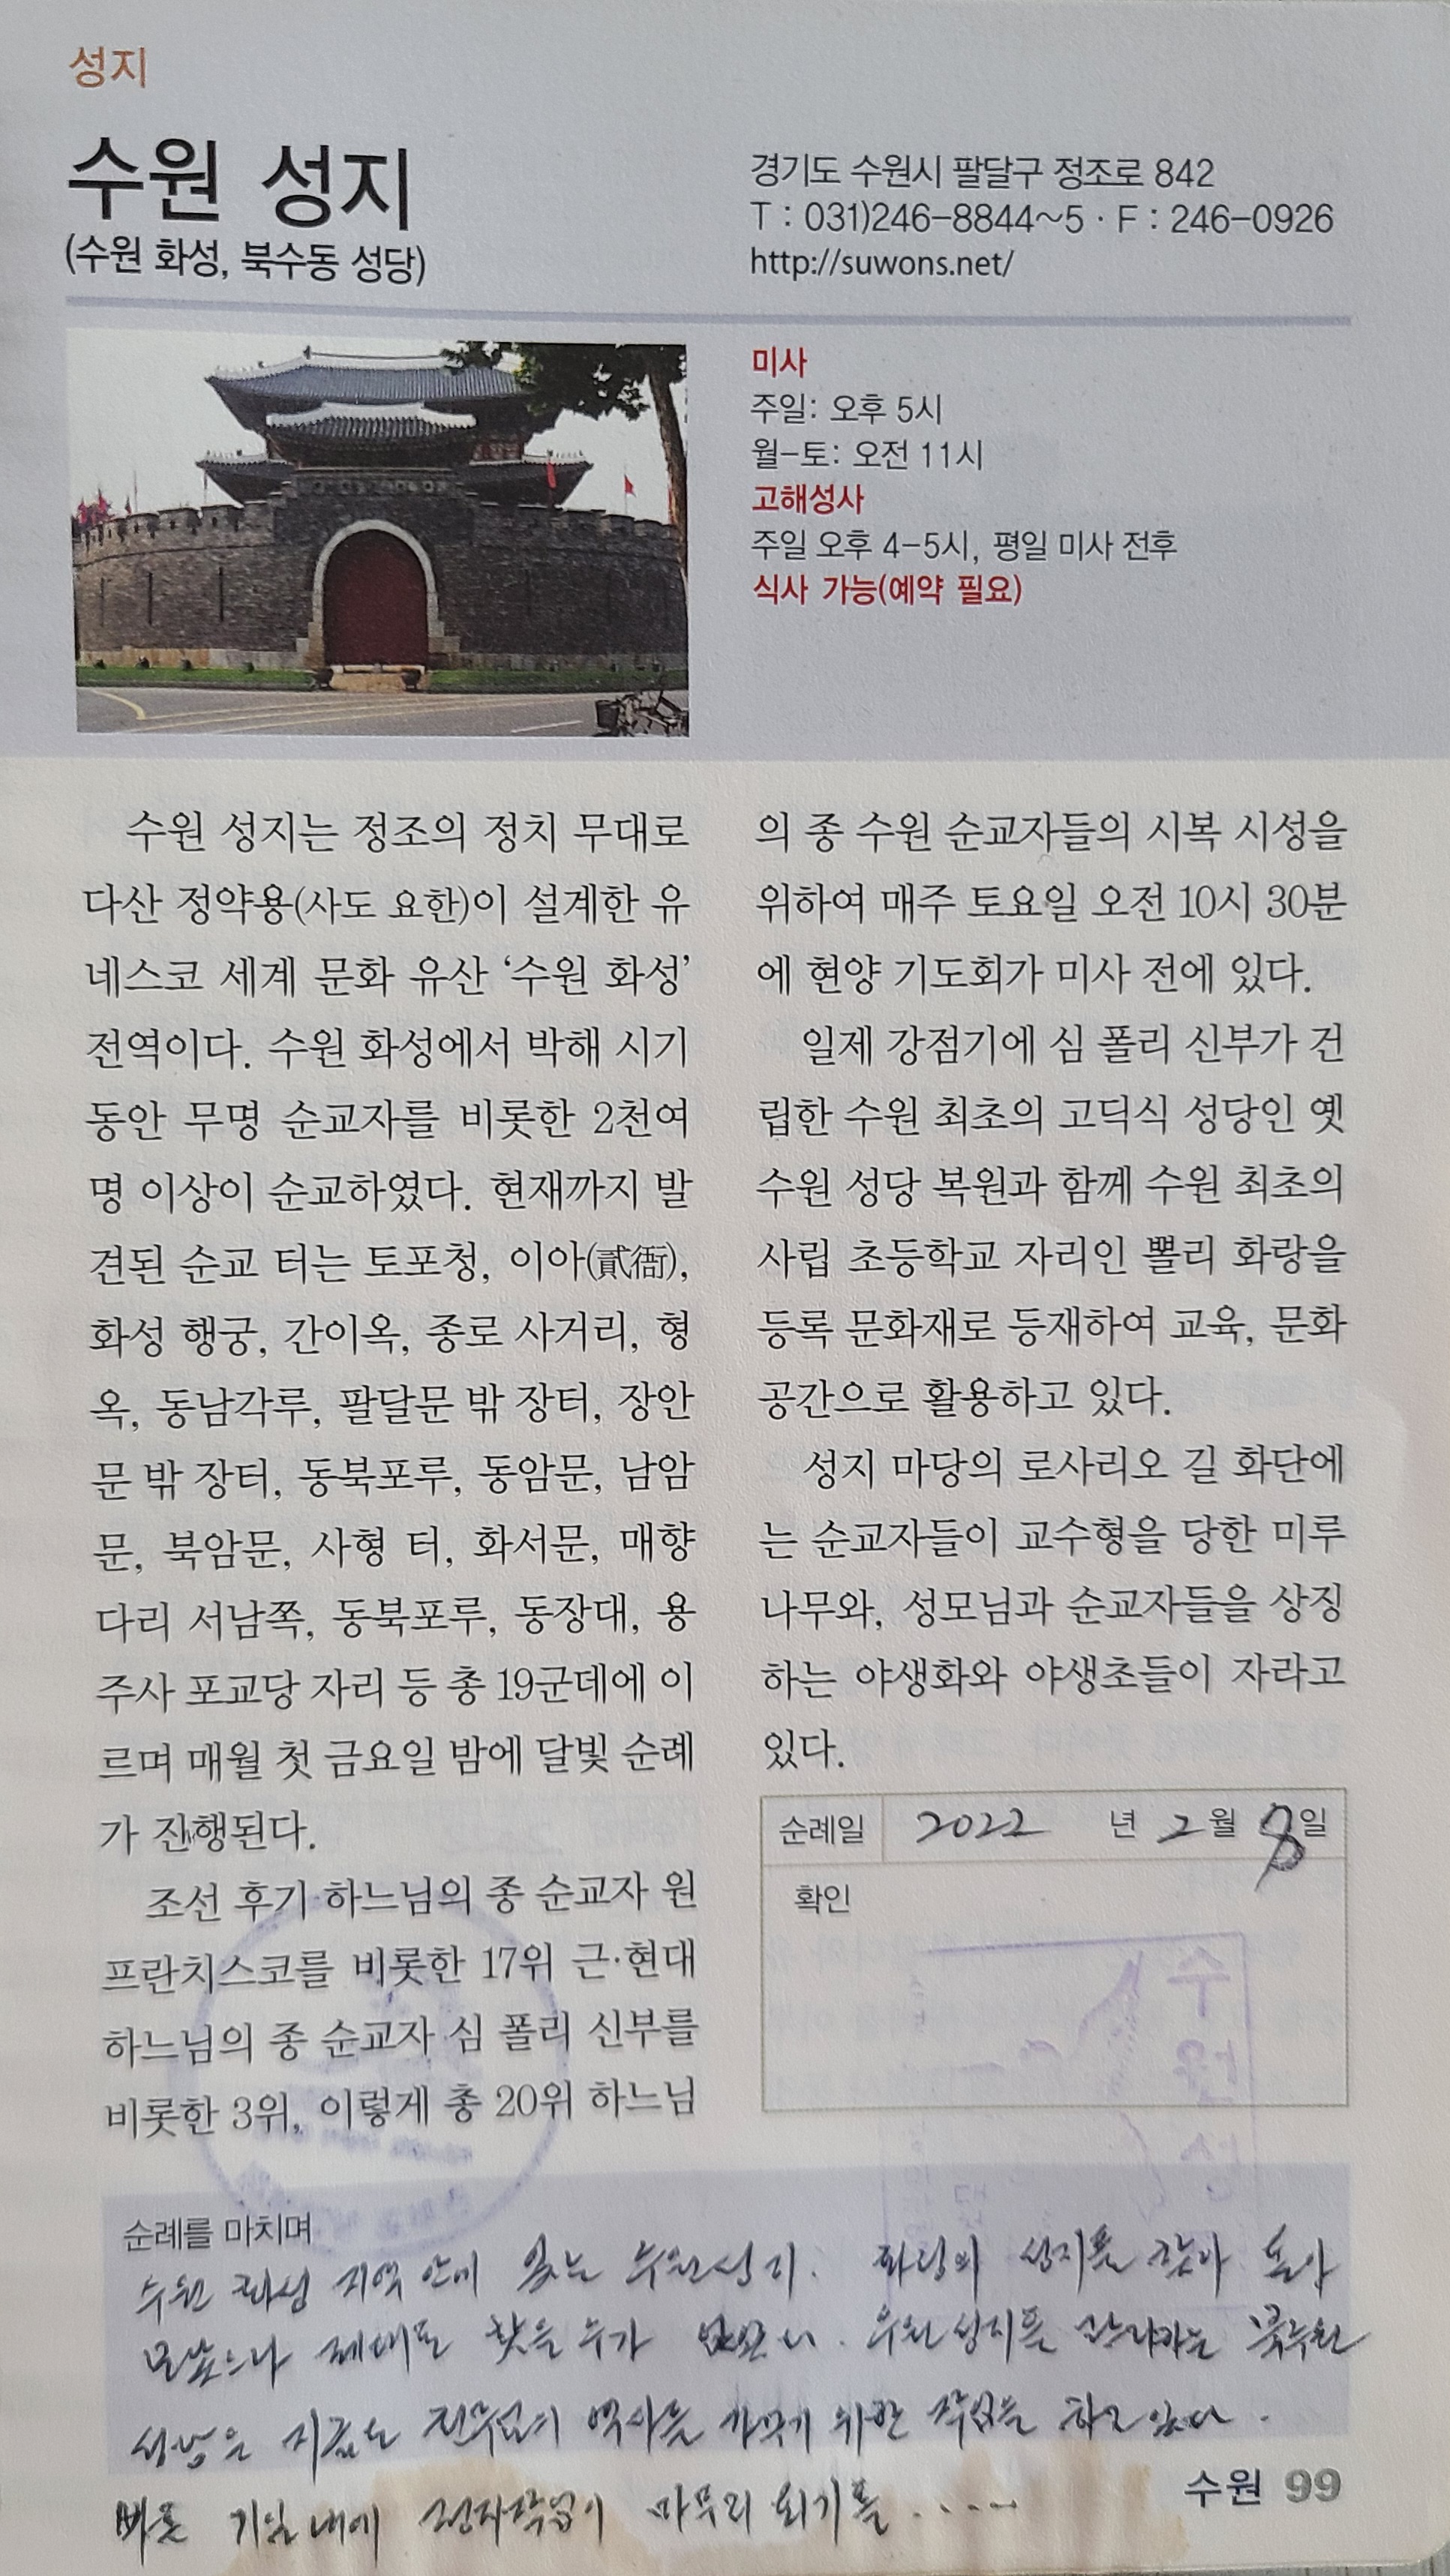 성지
수원 성지
(수원 화성, 북수동 성당)
경기도 수원시 팔달구 정조로 842
T : 031)246-8844~5 · F : 246-0926
http://suwons.net/
미사
주일: 오후 5시
월-토: 오전 11시
고해성사
주일 오후 4-5시, 평일 미사 전후
식사 가능(예약 필요)
수원 성지는 정조의 정치 무대로
다산 정약용(사도 요한)이 설계한 유
네스코 세계 문화 유산 ‘수원 화성’
전역이다. 수원 화성에서 박해 시기
동안 무명 순교자를 비롯한 2천여
명 이상이 순교하였다. 현재까지 발
견된 순교 터는 토포청, 이아(貳衙),
화성 행궁, 간이옥, 종로 사거리, 형
옥, 동남각루, 팔달문 밖 장터, 장안
문 밖 장터, 동북포루, 동암문, 남암
문, 북암문, 사형 터, 화서문, 매향
다리 서남쪽, 동북포루, 동장대, 용
주사 포교당 자리 등 총 19군데에 이
르며 매월 첫 금요일 밤에 달빛 순례
가 진행된다.
조선 후기 하느님의 종 순교자 원
프란치스코를 비롯한 17위 근·현대
하느님의 종 순교자 심 폴리 신부를
비롯한 3위, 이렇게 총 20위 하느님
의 종 수원 순교자들의 시복 시성을
위하여 매주 토요일 오전 10시 30분
에 현양 기도회가 미사 전에 있다.
일제 강점기에 심 폴리 신부가 건
립한 수원 최초의 고딕식 성당인 옛
수원 성당 복원과 함께 수원 최초의
사립 초등학교 자리인 뽈리 화랑을
등록 문화재로 등재하여 교육, 문화
공간으로 활용하고 있다.
성지 마당의 로사리오 길 화단에
는 순교자들이 교수형을 당한 미루
나무와, 성모님과 순교자들을 상징
하는 야생화와 야생초들이 자라고
있다.
순례일 2022 년 2월 8일
확인
순례를 마치며
수원 화성 지역 안에 있는 수원성지. 성지를 찾아 돌아
제대로 찾을 수가 수원성지를
성당은 지금도 역사를 위한 작업을 하고 있다.
빠른 기일내에 마무리 되기를 .....
수원 99